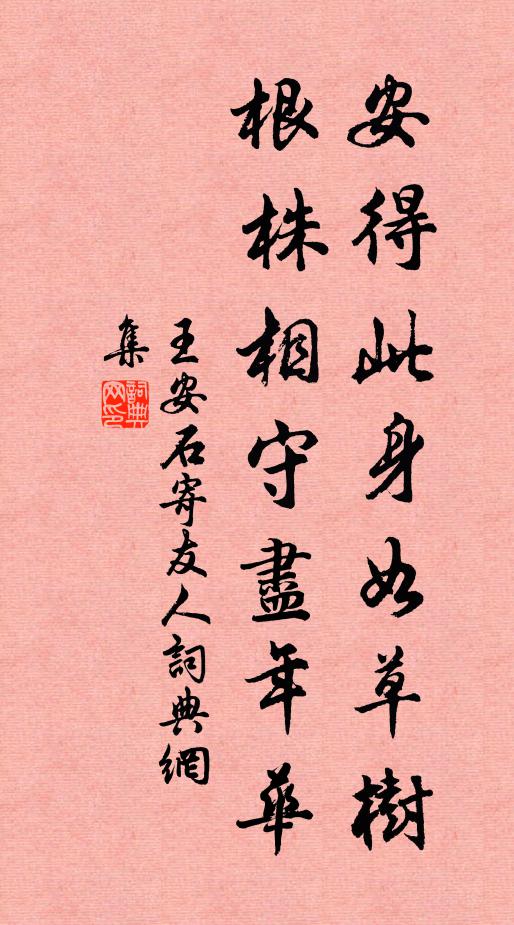 安得此身如草樹
根株相守盡年華
王安石寄友人詞典網
集
詞典
网印